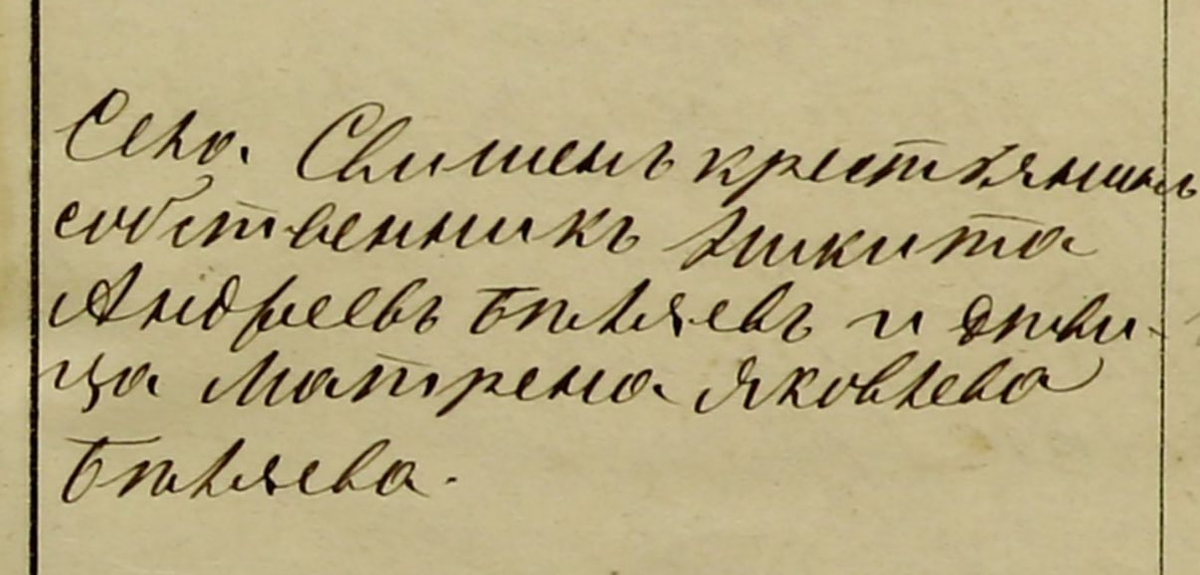 Села Свишенъ крестьянинъ
собственникъ Никита
Андреевъ Бѣляевъ и дѣви-
ца Матрена Яковлева
Бѣляева.